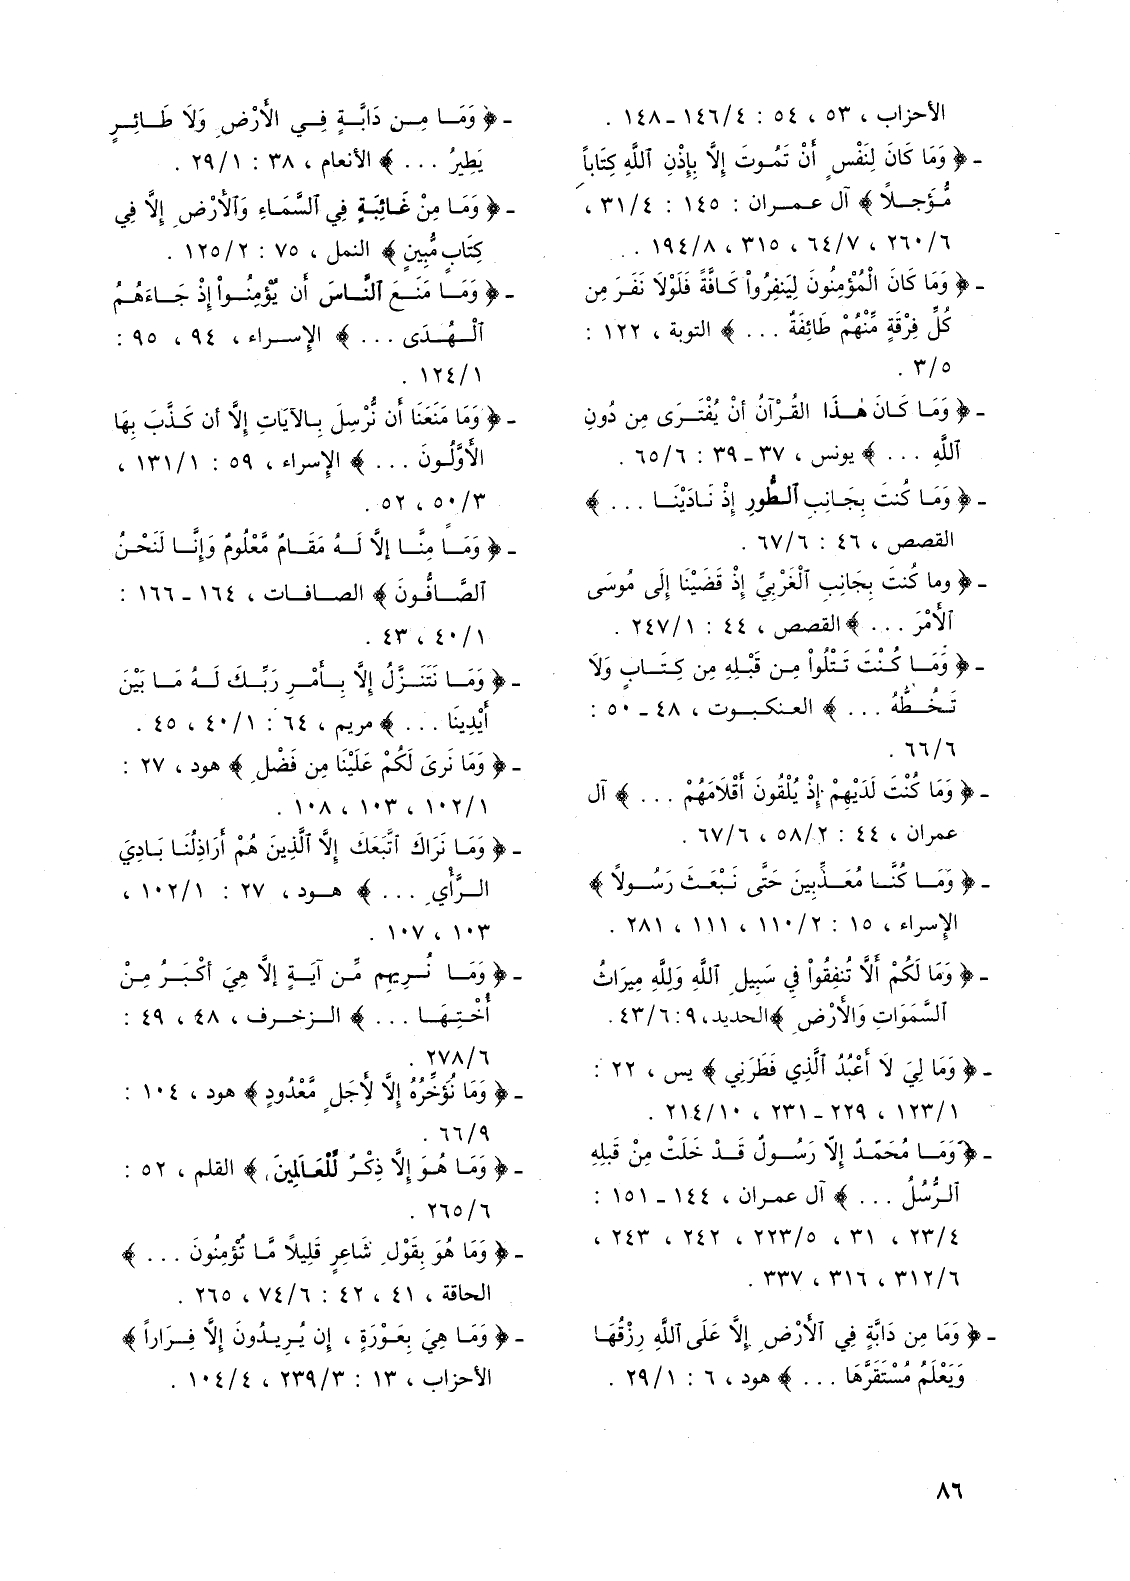 الأحزاب ، ٥٣ ، ٥٤ : ١٤٦/٤ ـ ١٤٨ .
ـ ﴿ وَمَا كَانَ لِنَفْسٍ أَنْ تَمُوتَ إِلَّا بِإِذْنِ ٱللَّهِ كِتَاباً
مُّؤَجَلاً ﴾ آل عمران : ١٤٥ : ٣١/٤ ،
٢٦٠/٦ ، ٦٤/٧ ، ٣١٥ ، ١٩٤/٨ .
ـ ﴿ وَمَا كَانَ الْمُؤْمِنُونَ لِيَنفِرُواْ كَافَّةً فَلَوْلَا نَفَرَ مِن
كُلِّ فِرْقَةٍ مِّنْهُمْ طَائِفَةٌ ... ﴾ التوبة ، ١٢٢ :
٣/٥ .
ـ ﴿ وَمَا كَانَ هٰذَا القُرْآنُ أَنْ يُفْتَرَى مِن دُونِ
ٱللَّهِ ... ﴾ يونس ، ٣٧ ـ ٣٩ : ٦٥/٦ .
ـ ﴿ وَمَا كُنتَ بِجَانِبِ ٱلطُّورِ إِذْ نَادَيْنَا ... ﴾
القصص ، ٤٦ : ٦٧/٦ .
ـ ﴿ وما كُنتَ بِجَانِبِ ٱلْغَرْبِيِّ إِذْ قَضَيْنَا إِلَى مُوسَى
ٱلْأَمْرَ ... ﴾ القصص ، ٤٤ : ٢٤٧/١ .
ـ ﴿ وَمَا كُنْتَ تَتْلُواْ مِن قَبْلِهِ مِن كِتَابٍ وَلَا
تَخُطُّهُ ... ﴾ العنكبوت ، ٤٨ ـ ٥٠ :
٦٦/٦ .
ـ ﴿ وَمَا كُنْتَ لَدَيْهِمْ إِذْ يُلْقُونَ أَقْلَامَهُمْ ... ﴾ آل
عمران ، ٤٤ : ٥٨/٢ ، ٦٧/٦ .
ـ ﴿ وَمَا كُنَّا مُعَذِّبِينَ حَتَّى نَبْعَثَ رَسُولاً ﴾
الإسراء ، ١٥ : ١١٠/٢ ، ١١١ ، ٢٨١ .
ـ ﴿ وَمَا لَكُمْ أَلَّا تُنفِقُواْ فِي سَبِيلِ ٱللَّهِ وَلِلَّهِ مِيرَاثُ
ٱلسَّمَوَاتِ وَالْأَرْضِ ﴾ الحديد ، ٩ : ٤٣/٦ .
ـ ﴿ وَمَا لِيَ لَا أَعْبُدُ ٱلَّذِي فَطَرَنِي ﴾ يس ، ٢٢ :
١٢٣/١ ، ٢٢٩ ـ ٢٣١ ، ٢١٤/١٠ .
ـ ﴿ وَمَا مُحَمَّدٌ إِلَّا رَسُولٌ قَدْ خَلَتْ مِنْ قَبْلِهِ
ٱلرُّسُلُ ... ﴾ آل عمران ، ١٤٤ ـ ١٥١ :
٢٣/٤ ، ٣١ ، ٢٢٣/٥ ، ٢٤٢ ، ٢٤٣ ،
٣١٢/٦ ، ٣١٦ ، ٣٣٧ .
ـ ﴿ وَمَا مِن دَابَّةٍ فِي ٱلْأَرْضِ إِلَّا عَلَى ٱللَّهِ رِزْقُهَا
وَيَعْلَمُ مُسْتَقَرَّهَا ... ﴾ هود ، ٦ : ٢٩/١ .
ـ ﴿ وَمَا مِن دَابَّةٍ فِي الأَرْضِ وَلَا طَائِرٍ
يَطِيرُ ... ﴾ الأنعام ، ٣٨ : ٢٩/١ .
ـ ﴿ وَمَا مِنْ غَائِبَةٍ فِي ٱلسَّمَاءِ وَٱلْأَرْضِ إِلَّا فِي
كِتَابٍ مُّبِينٍ ﴾ النمل ، ٧٥ : ١٢٥/٢ .
ـ ﴿ وَمَا مَنَعَ ٱلنَّاسَ أَن يُؤْمِنُواْ إِذْ جَاءَهُمُ
ٱلْهُدَى ... ﴾ الإسراء ، ٩٤ ، ٩٥ :
١٢٤/١ .
ـ ﴿ وَمَا مَنَعَنَا أَن نُّرْسِلَ بِالآيَاتِ إِلَّا أَن كَذَّبَ بِهَا
الأَوَّلُونَ ... ﴾ الإسراء ، ٥٩ : ١٣١/١ ،
٥٠/٣ ، ٥٢ .
ـ ﴿ وَمَا مِنَّا إِلَّا لَهُ مَقَامٌ مَّعْلُومٌ وَإِنَّا لَنَحْنُ
ٱلصَّافُّونَ ﴾ الصافات ، ١٦٤ ـ ١٦٦ :
٤٠/١ ، ٤٣ .
ـ ﴿ وَمَا نَتَنَزَّلُ إِلَّا بِأَمْرِ رَبِّكَ لَهُ مَا بَيْنَ
أَيْدِينَا ... ﴾ مريم ، ٦٤ : ٤٠/١ ، ٤٥ .
ـ ﴿ وَمَا نَرَىَ لَكُمْ عَلَيْنَا مِن فَضْلٍ ﴾ هود ، ٢٧ :
١٠٢/١ ، ١٠٣ ، ١٠٨ .
ـ ﴿ وَمَا نَرَاكَ ٱتَّبَعَكَ إِلَّا ٱلَّذِينَ هُمْ أَرَاذِلُنَا بَادِيَ
الرَّأْيِ ... ﴾ هود ، ٢٧ : ١٠٢/١ ،
١٠٣ ، ١٠٧ .
ـ ﴿ وَمَا نُرِيهِم مِّن آيَةٍ إِلَّا هِيَ أَكْبَرُ مِنْ
أُخْتِهَا ... ﴾ الزخرف ، ٤٨ ، ٤٩ :
٢٧٨/٦ .
ـ ﴿ وَمَا نُؤَخِّرُهُ إِلَّا لِأَجَلٍ مَّعْدُودٍ ﴾ هود ، ١٠٤ :
٦٦/٩ .
ـ ﴿ وَمَا هُوَ إِلَّا ذِكْرٌ لِّلْعَالَمِينَ ﴾ القلم ، ٥٢ :
٢٦٥/٦ .
ـ ﴿ وَمَا هُوَ بِقَوْلِ شَاعِرٍ قَلِيلاً مَّا تُؤْمِنُونَ ... ﴾
الحاقة ، ٤١ ، ٤٢ : ٧٤/٦ ، ٢٦٥ .
ـ ﴿ وَمَا هِيَ بِعَوْرَةٍ ، إِن يُرِيدُونَ إِلَّا فِرَاراً ﴾
الأحزاب ، ١٣ : ٢٣٩/٣ ، ١٠٤/٤ .
٨٦